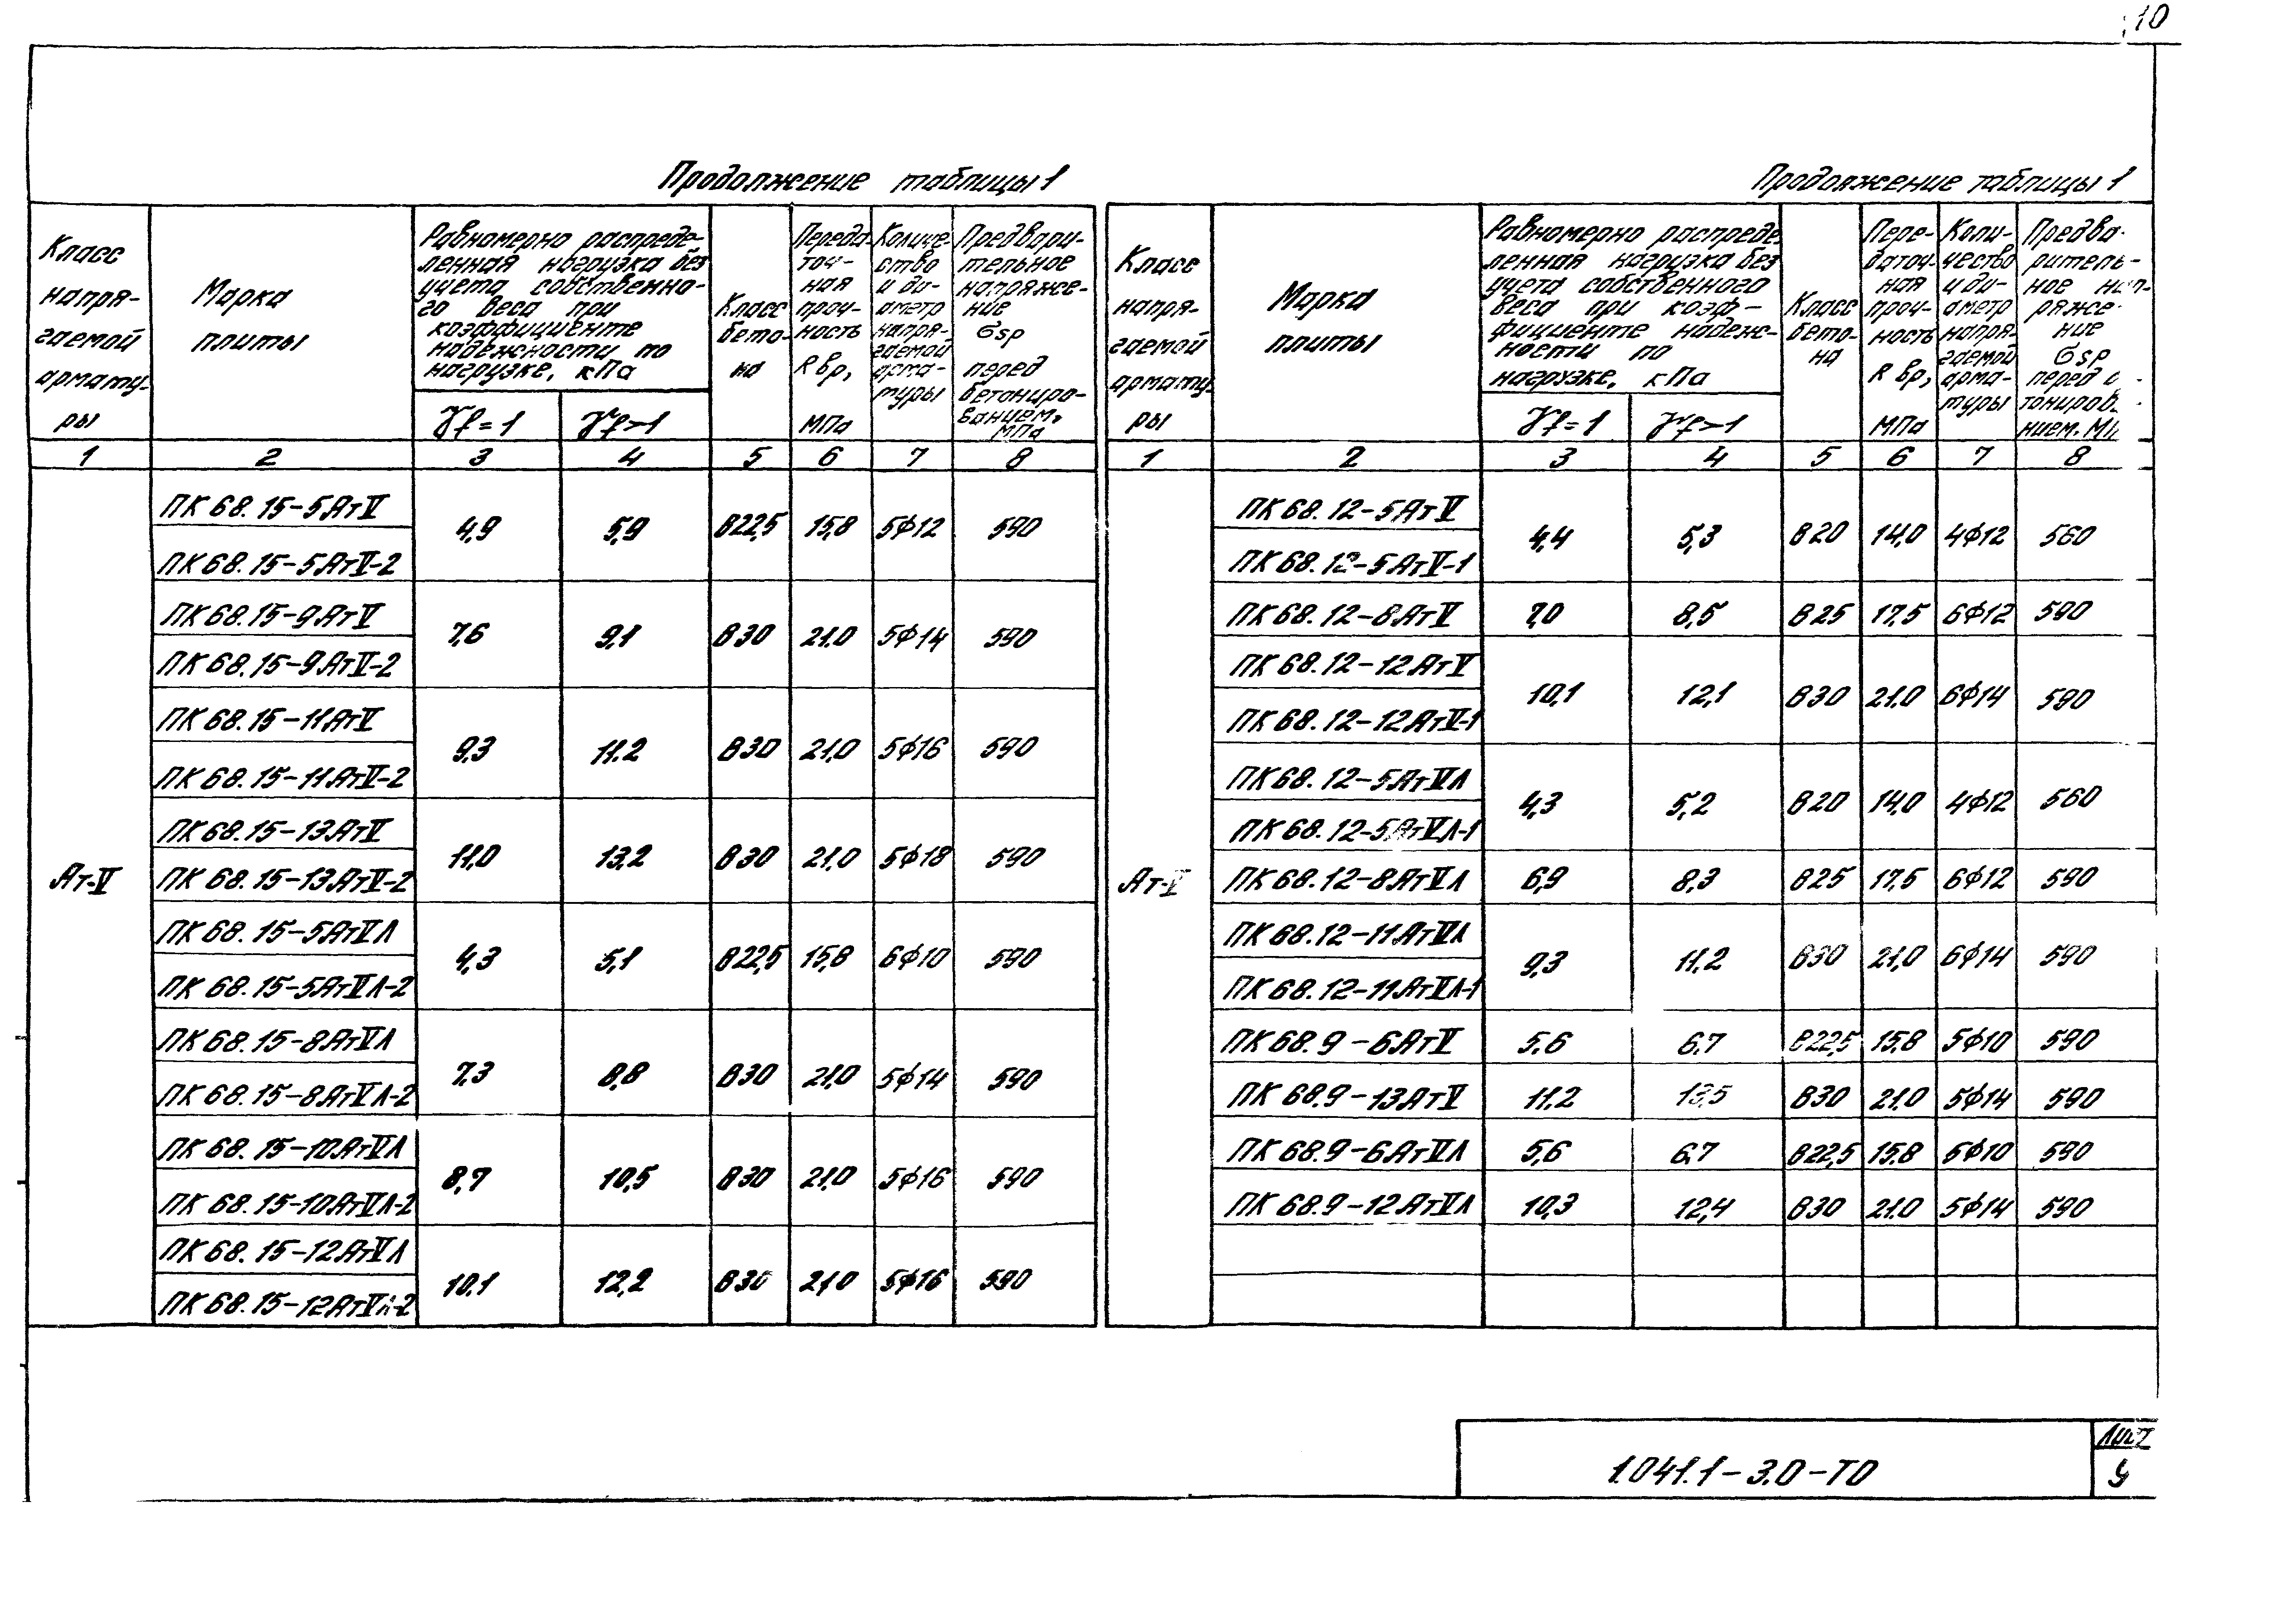 10
Продолжение таблицы 1
Класс
напря-
гаемой
армату-
ры
Марка
плиты
Равномерно распреде-
ленная нагрузка без
учета собственно-
го веса при
коэффициенте
надежности по
нагрузке, кПа
γf = 1
γf > 1
Класс
бето-
на
Переда-
точ-
ная
проч-
ность
R вр,
МПа
Количе-
ство
и ди-
аметр
напря-
гаемой
арма-
туры
Предвари-
тельное
напряже-
ние
σsp
перед
бетониро-
ванием,
МПа
1 2 3 4 5 6 7 8
Ат-V
ПК 68.15-5АтV
ПК 68.15-5АтV-2
4,9 5,9 В22,5 15,8 5ф12 590
ПК 68.15-9АтV
ПК 68.15-9АтV-2
7,6 9,1 В30 21,0 5ф14 590
ПК 68.15-11АтV
ПК 68.15-11АтV-2
9,3 11,2 В30 21,0 5ф16 590
ПК 68.15-13АтV
ПК 68.15-13АтV-2
11,0 13,2 В30 21,0 5ф18 590
ПК 68.15-5АтVЛ
ПК 68.15-5АтVЛ-2
4,3 5,1 В22,5 15,8 6ф10 590
ПК 68.15-8АтVЛ
ПК 68.15-8АтVЛ-2
7,3 8,8 В30 21,0 5ф14 590
ПК 68.15-10АтVЛ
ПК 68.15-10АтVЛ-2
8,7 10,5 В30 21,0 5ф16 590
ПК 68.15-12АтVЛ
ПК 68.15-12АтVЛ-2
10,1 12,2 В30 21,0 5ф16 590
Продолжение таблицы 1
Класс
напря-
гаемой
армату-
ры
Марка
плиты
Равномерно распреде-
ленная нагрузка без
учета собственного
веса при коэф-
фициенте надеж-
ности по
нагрузке, кПа
γf = 1
γf > 1
Класс
бето-
на
Пере-
даточ-
ная
проч-
ность
R вр,
МПа
Коли-
чество
и ди-
аметр
напря-
гаемой
арма-
туры
Предва-
ритель-
ное нап-
ряже-
ние
σsp
перед
нием.
1 2 3 4 5 6 7 8
Ат-V
ПК 68.12-5АтV
ПК 68.12-5АтV-1
4,4 5,3 В20 14,0 4ф12 560
ПК 68.12-8АтV 7,0 8,5 В25 17,5 6ф12 590
ПК 68.12-12АтV
ПК 68.12-12АтV-1
10,1 12,1 В30 21,0 6ф14 590
ПК 68.12-5АтVЛ
ПК 68.12-5АтVЛ-1
4,3 5,2 В20 14,0 4ф12 560
ПК 68.12-8АтVЛ 6,9 8,3 В25 17,5 6ф12 590
ПК 68.12-11АтVЛ
ПК 68.12-11АтVЛ-1
9,3 11,2 В30 21,0 6ф14 590
ПК 68.9-6АтV 5,6 6,7 В22,5 15,8 5ф10 590
ПК 68.9-13АтV 11,2 13,5 В30 21,0 5ф14 590
ПК 68.9-6АтVЛ 5,6 6,7 В22,5 15,8 5ф10 590
ПК 68.9-12АтVЛ 10,3 12,4 В30 21,0 5ф14 590
1.041.1-3.0-ТО
Лист
9